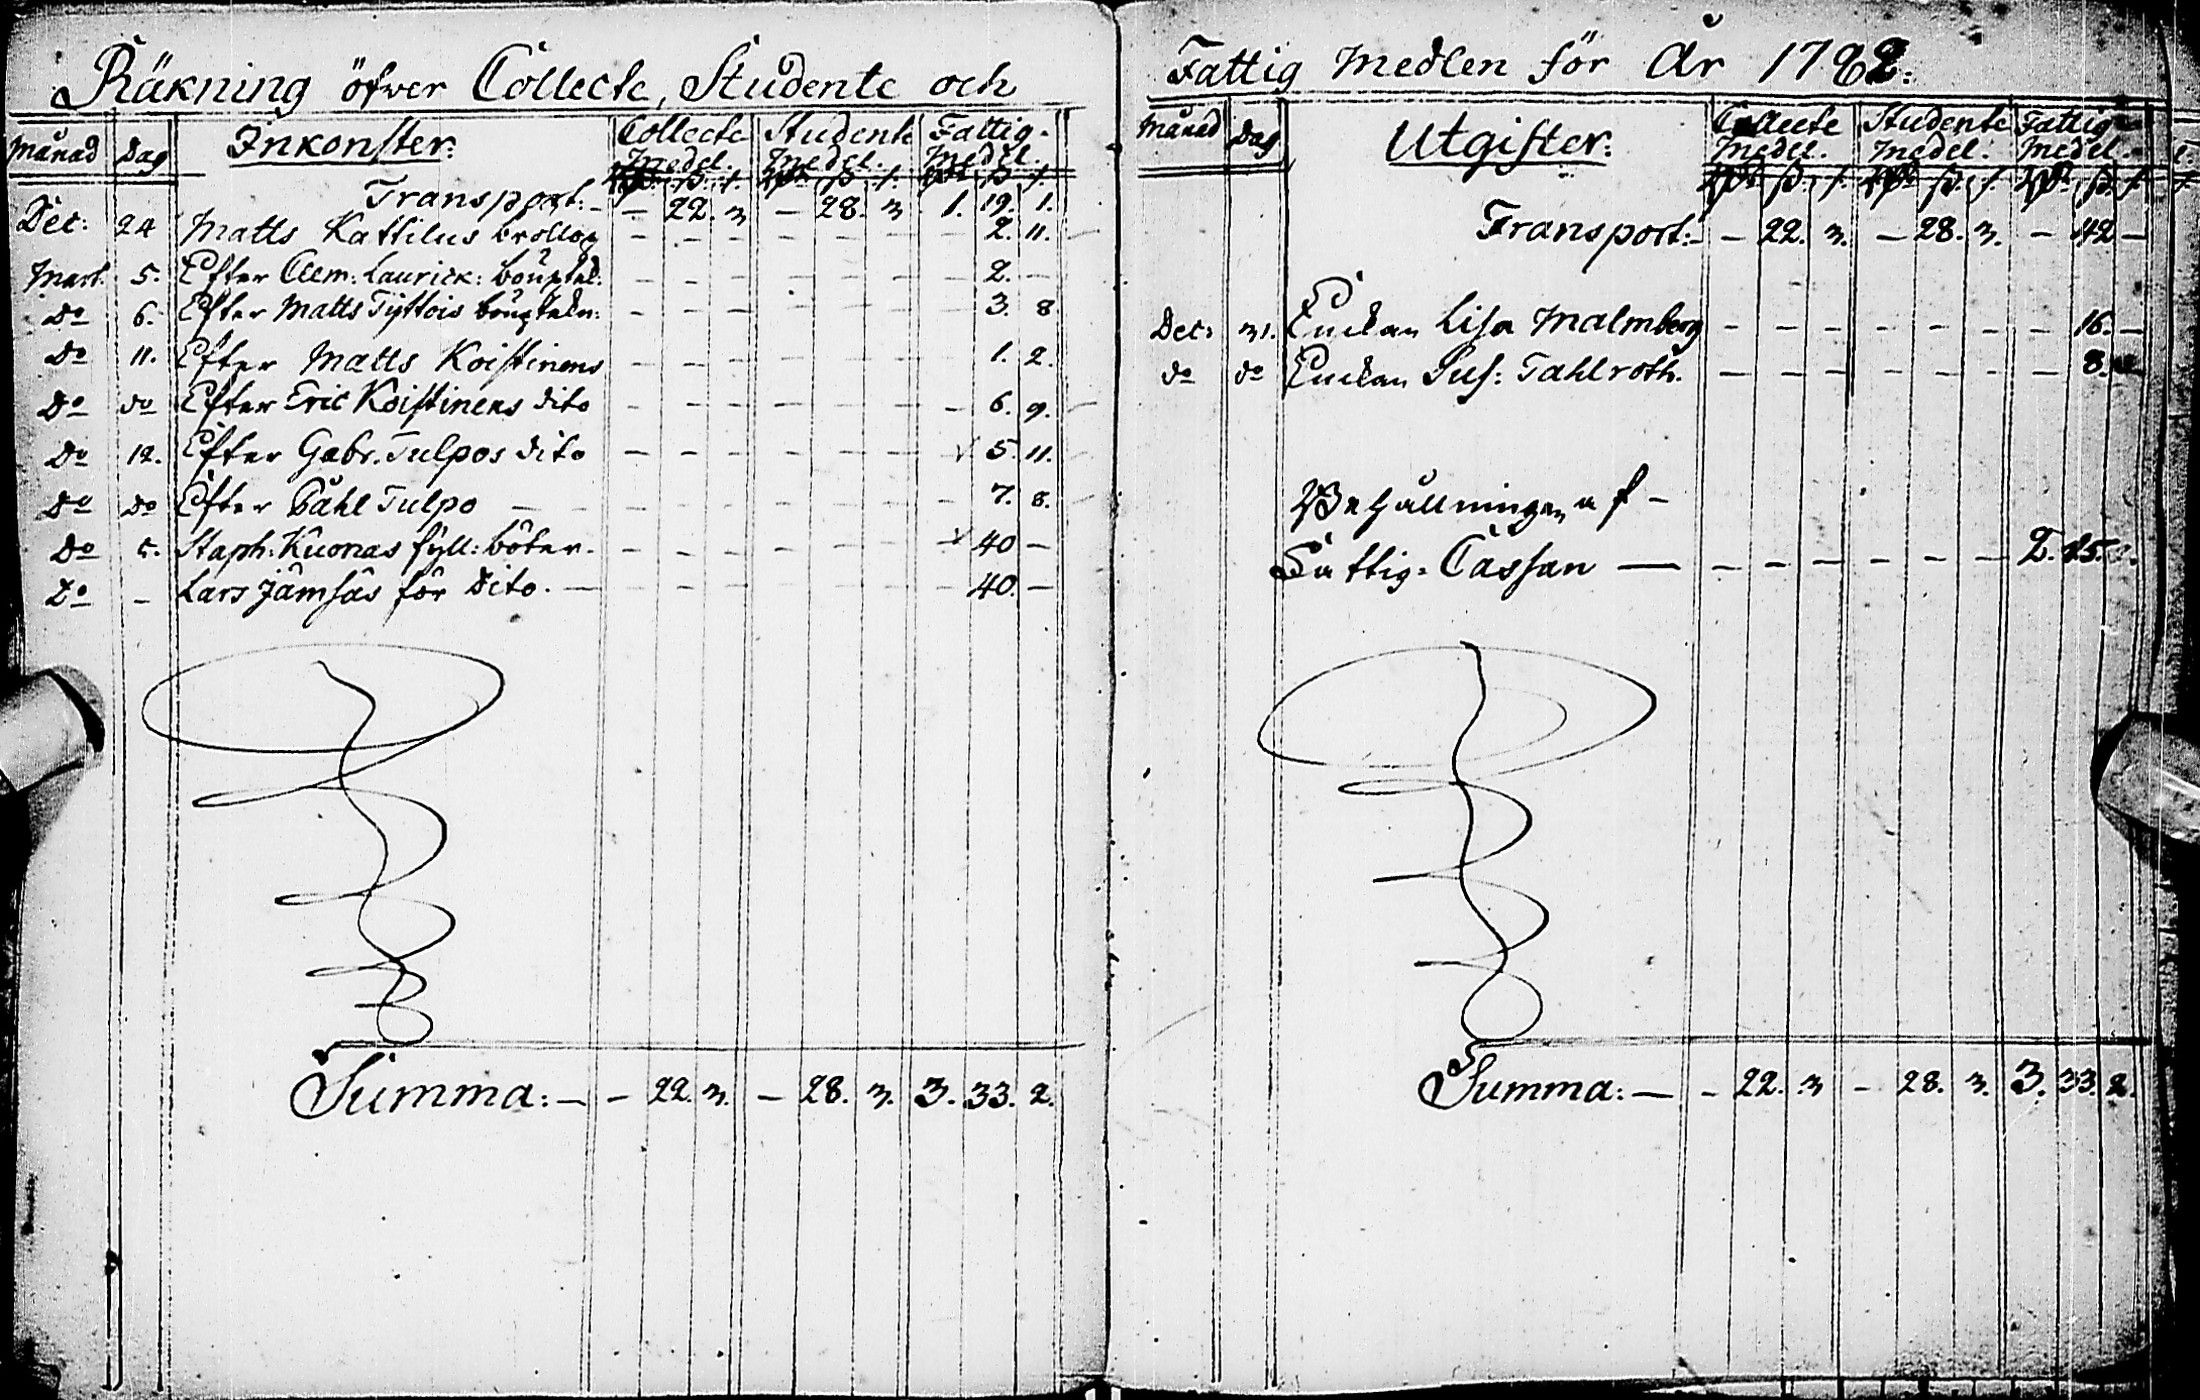 Räkning öfver Collecte, Studente och
Månad Dag Inkomster: Collecte Medel. Studente Medel. Fattig- Medel.
Transport: - - 22. 3 - 28. 3 1. 19. 1.
Dec: 24 Matts Kattilus bröllop - - - - - - - 2. 11.
Mart. 5. Efter Clem: Laurick: bouptek: - - - - - - - 2. -
Do 6. Efter Matts Tyttois bouptekn: - - - - - - - 3. 8
Do 11. Efter Matts Koistinens - - - - - - - 1. 2.
Do do Efter Eric Koistinens dito - - - - - - - 6. 9.
Do 12. Efter Gabr. Tulpos dito - - - - - - 5. 11.
Do Do Efter Påhl Tulpo - - - - - - - 7. 8.
Do 5. Staph: Kuonas fyll: böter. - - - - - - 40 -
Do - Lars Jämsäs för Dito. - - - - - - - 40. -
Summa: - - 22. 3. - 28. 3. 3. 33. 2.
Fattig Medlen för År 1782:
Månad Dag Utgifter: Collecte Medel. Studente Medel. Fattig Medel.
Transport: - - 22. 3. - 28. 3. - 42 -
Dec: 31. Enckan Lisa Malmberg - - - - - - - 16. -
do do Enckan Sus: Tahlroth. - - - - - - - 8.
Behållningen af -
Fattig-Cassan - - - - - - - 2. 15.
Summa: - - 22. 3 - 28. 3. 3. 33. 2.